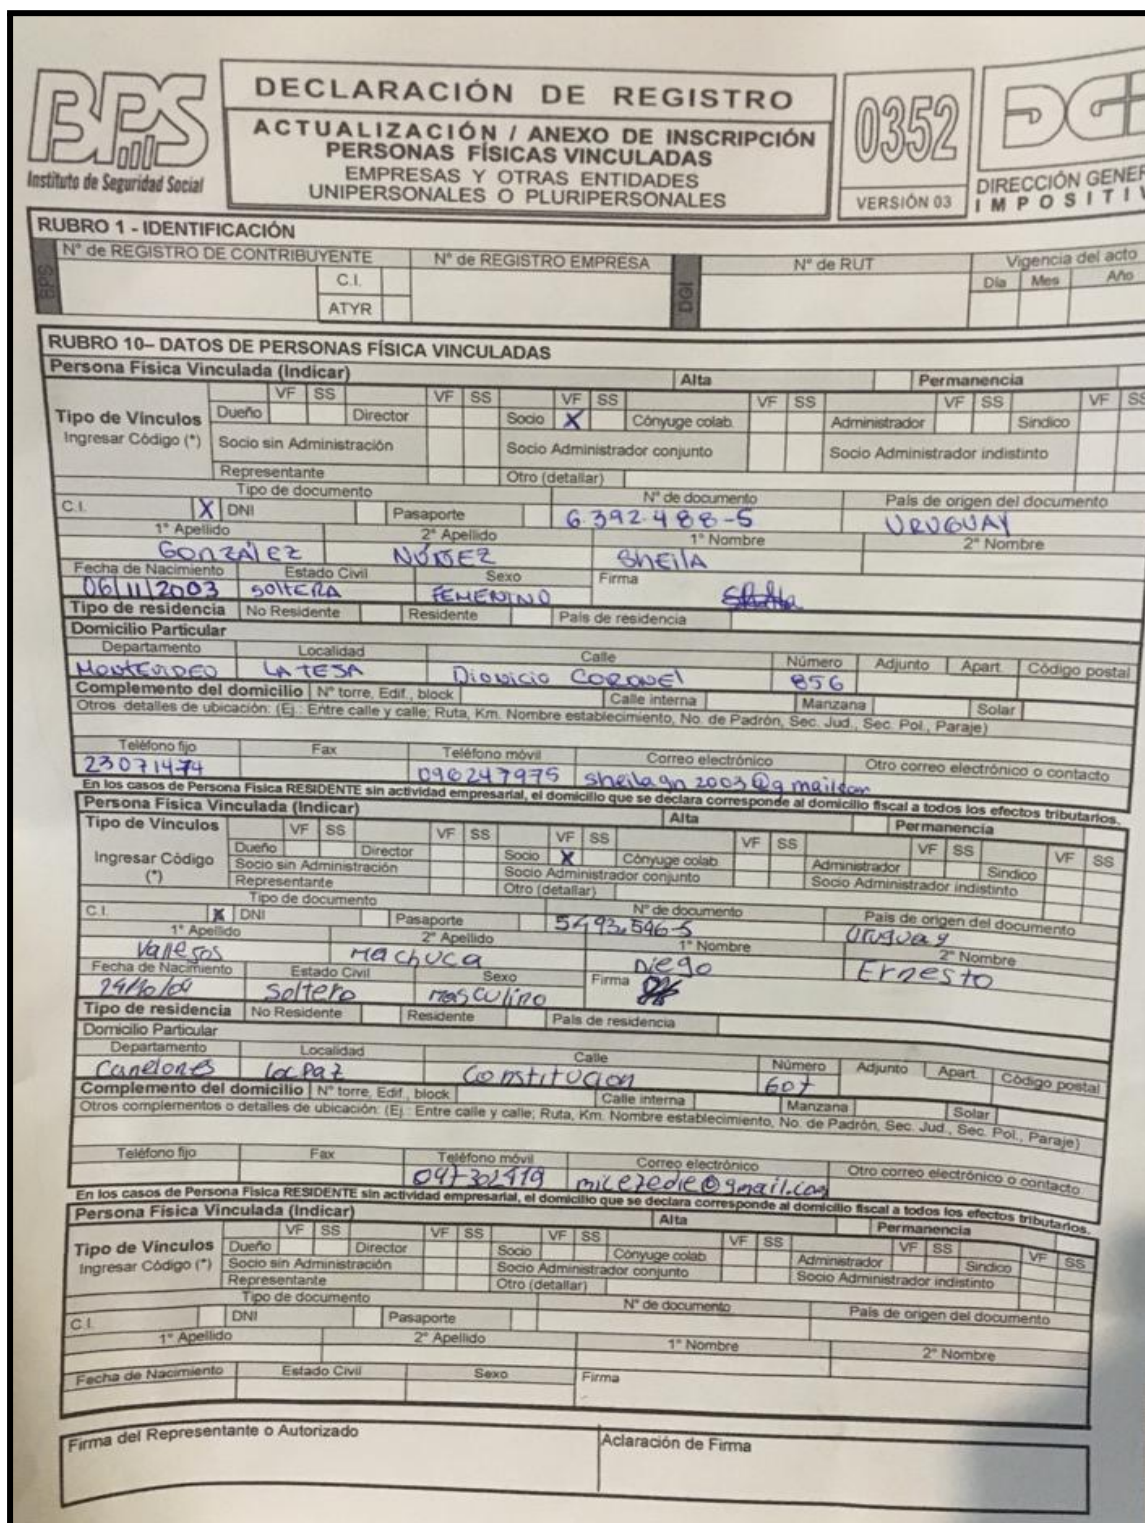 BPS
Instituto de Seguridad Social
DECLARACIÓN DE REGISTRO
ACTUALIZACIÓN / ANEXO DE INSCRIPCIÓN
PERSONAS FÍSICAS VINCULADAS
EMPRESAS Y OTRAS ENTIDADES
UNIPERSONALES O PLURIPERSONALES
0352
VERSIÓN 03
DIRECCIÓN GENER
IMPOSITIV
RUBRO 1 - IDENTIFICACIÓN
BPS
N° de REGISTRO DE CONTRIBUYENTE N° de REGISTRO EMPRESA DGI N° de RUT Vigencia del acto
C.I. Día Mes Año
ATYR
RUBRO 10– DATOS DE PERSONAS FÍSICA VINCULADAS
Persona Física Vinculada (Indicar) Alta Permanencia
VF SS VF SS VF SS VF SS VF SS VF SS
Tipo de Vínculos Dueño Director Socio X Cónyuge colab. Administrador Sindico
Ingresar Código (*) Socio sin Administración Socio Administrador conjunto Socio Administrador indistinto
Representante Otro (detallar)
Tipo de documento N° de documento País de origen del documento
C.I. X DNI Pasaporte 6.392.488-5 URUGUAY
1° Apellido 2° Apellido 1° Nombre 2° Nombre
González NÚÑEZ SHEILA
Fecha de Nacimiento Estado Civil Sexo Firma
06/11/2003 SOLTERA FEMENINO
Tipo de residencia No Residente Residente País de residencia
Domicilio Particular
Departamento Localidad Calle Número Adjunto Apart. Código postal
MONTEVIDEO LA TEJA Dionicio CORONEL 856
Complemento del domicilio N° torre, Edif., block Calle interna Manzana Solar
Otros detalles de ubicación: (Ej.: Entre calle y calle; Ruta, Km. Nombre establecimiento, No. de Padrón, Sec. Jud., Sec. Pol., Paraje)
Teléfono fijo Fax Teléfono móvil Correo electrónico Otro correo electrónico o contacto
23071474 096247975 sheilagn2003@gmailcom
En los casos de Persona Física RESIDENTE sin actividad empresarial, el domicilio que se declara corresponde al domicilio fiscal a todos los efectos tributarios.
Persona Física Vinculada (Indicar) Alta Permanencia
Tipo de Vínculos VF SS VF SS VF SS VF SS VF SS VF SS
Dueño Director Socio X Cónyuge colab Administrador Sindico
Ingresar Código Socio sin Administración Socio Administrador conjunto Socio Administrador indistinto
(*) Representante Otro (detallar)
Tipo de documento N° de documento País de origen del documento
C.I. X DNI Pasaporte 5493.596-5 Uruguay
1° Apellido 2° Apellido 1° Nombre 2° Nombre
Vallejos Machuca Diego Ernesto
Fecha de Nacimiento Estado Civil Sexo Firma
Soltero masculino
Tipo de residencia No Residente Residente País de residencia
Domicilio Particular
Departamento Localidad Calle Número Adjunto Apart. Código postal
Canelones Constitucion 607
Complemento del domicilio N° torre, Edif., block Calle interna Manzana Solar
Otros complementos o detalles de ubicación: (Ej.: Entre calle y calle; Ruta, Km. Nombre establecimiento, No. de Padrón, Sec. Jud., Sec. Pol., Paraje)
Teléfono fijo Fax Teléfono móvil Correo electrónico Otro correo electrónico o contacto
En los casos de Persona Física RESIDENTE sin actividad empresarial, el domicilio que se declara corresponde al domicilio fiscal a todos los efectos tributarios.
Persona Física Vinculada (Indicar) Alta Permanencia
VF SS VF SS VF SS VF SS VF SS VF SS
Tipo de Vínculos Dueño Director Socio Cónyuge colab Administrador Sindico
Ingresar Código (*) Socio sin Administración Socio Administrador conjunto Socio Administrador indistinto
Representante Otro (detallar)
Tipo de documento N° de documento País de origen del documento
C.I. DNI Pasaporte
1° Apellido 2° Apellido 1° Nombre 2° Nombre
Fecha de Nacimiento Estado Civil Sexo Firma
Firma del Representante o Autorizado Aclaración de Firma